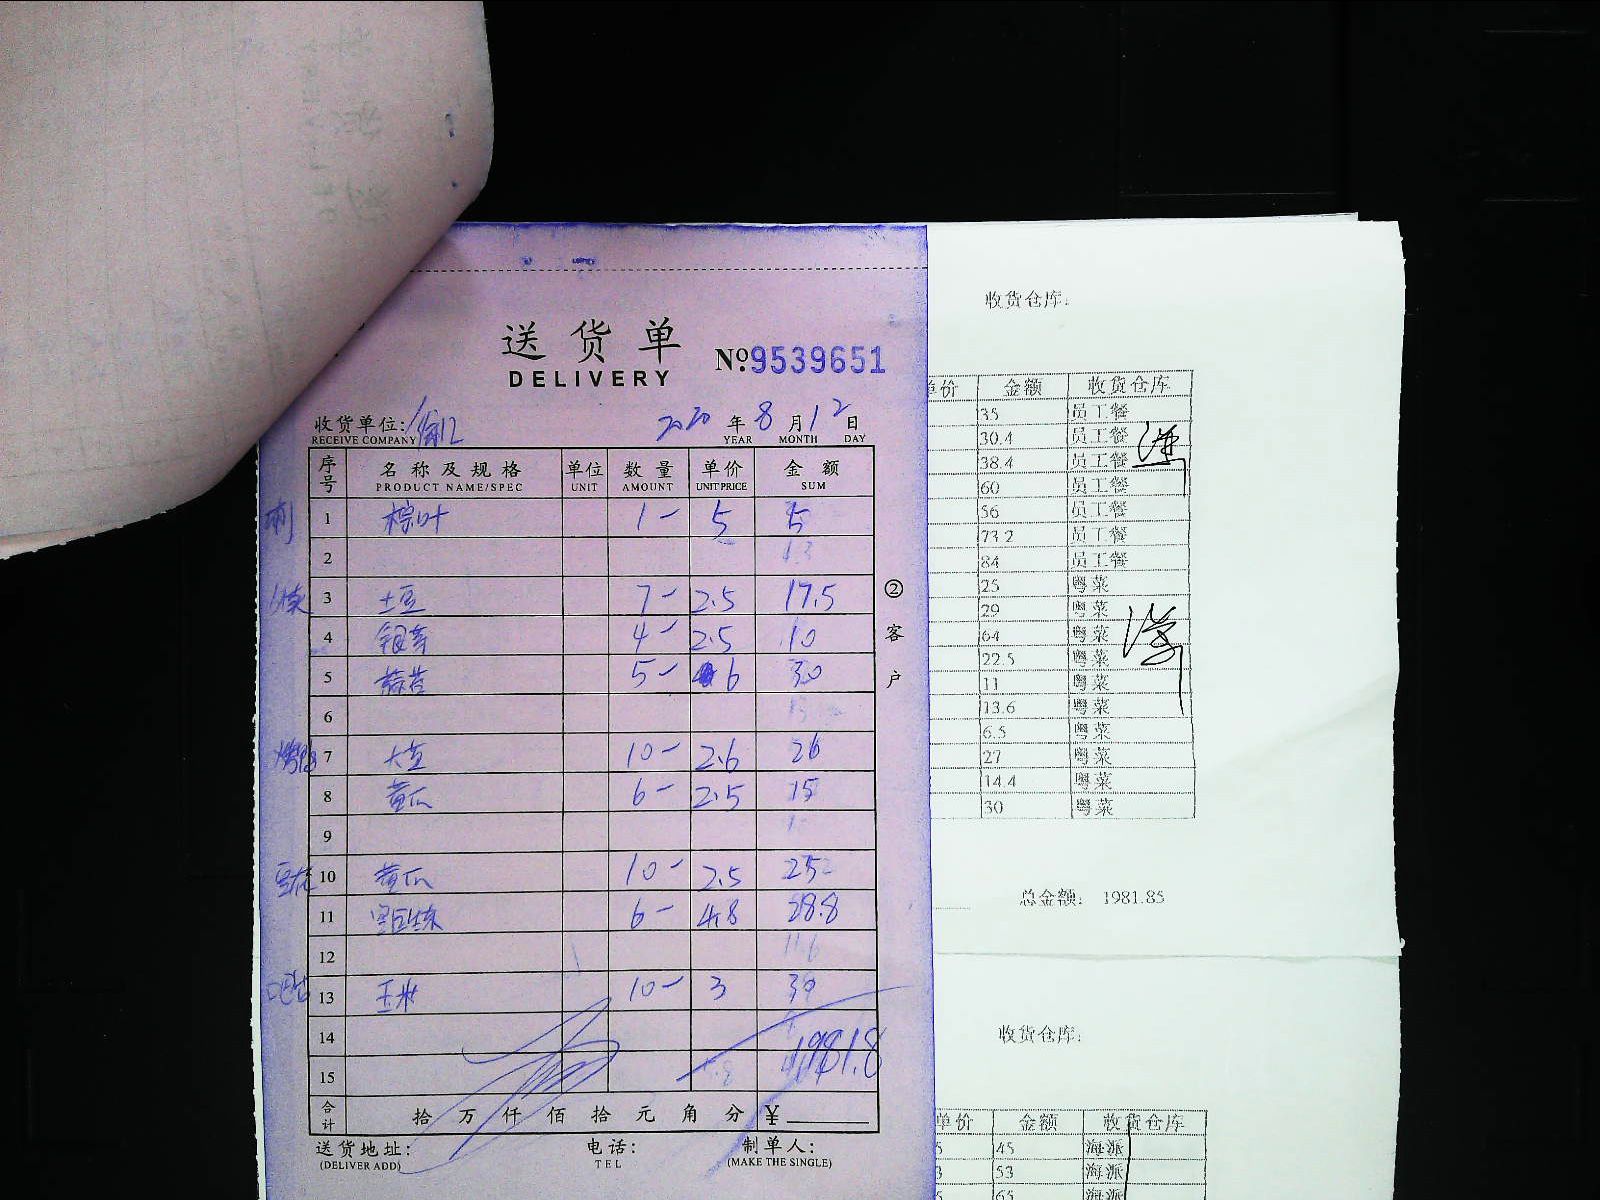 送货单
DELIVERY
№:9539651
收货单位:
RECEIVE COMPANY
2020 年 8 月 12 日
YEAR MONTH DAY
序号 名称及规格 单位 数量 单价 金额
PRODUCT NAME/SPEC UNIT AMOUNT UNIT PRICE SUM
1 棕叶 1- 5 5
2
3 土豆 7- 2.5 17.5
4 银芽 4- 2.5 10
5 蒜苔 5- 6 30
6
7 大豆 10- 2.6 26
8 黄瓜 6- 2.5 15
9
10 黄瓜 10- 2.5 25
11 6- 4.8 28.8
12
13 玉米 10- 3 30
14
15 1981.8
合计 拾 万 仟 佰 拾 元 角 分 ¥
送货地址: 电话: 制单人:
(DELIVER ADD) TEL (MAKE THE SINGLE)
②客户
收货仓库:
单价 金额 收货仓库
35 员工餐
30.4 员工餐
38.4 员工餐
60 员工餐
56 员工餐
73.2 员工餐
84 员工餐
25 粤菜
29 粤菜
64 粤菜
22.5 粤菜
11 粤菜
13.6 粤菜
6.5 粤菜
27 粤菜
14.4 粤菜
30 粤菜
总金额: 1981.85
收货仓库:
单价 金额 收货仓库
5 45 海派
3 53 海派
5 65 海派